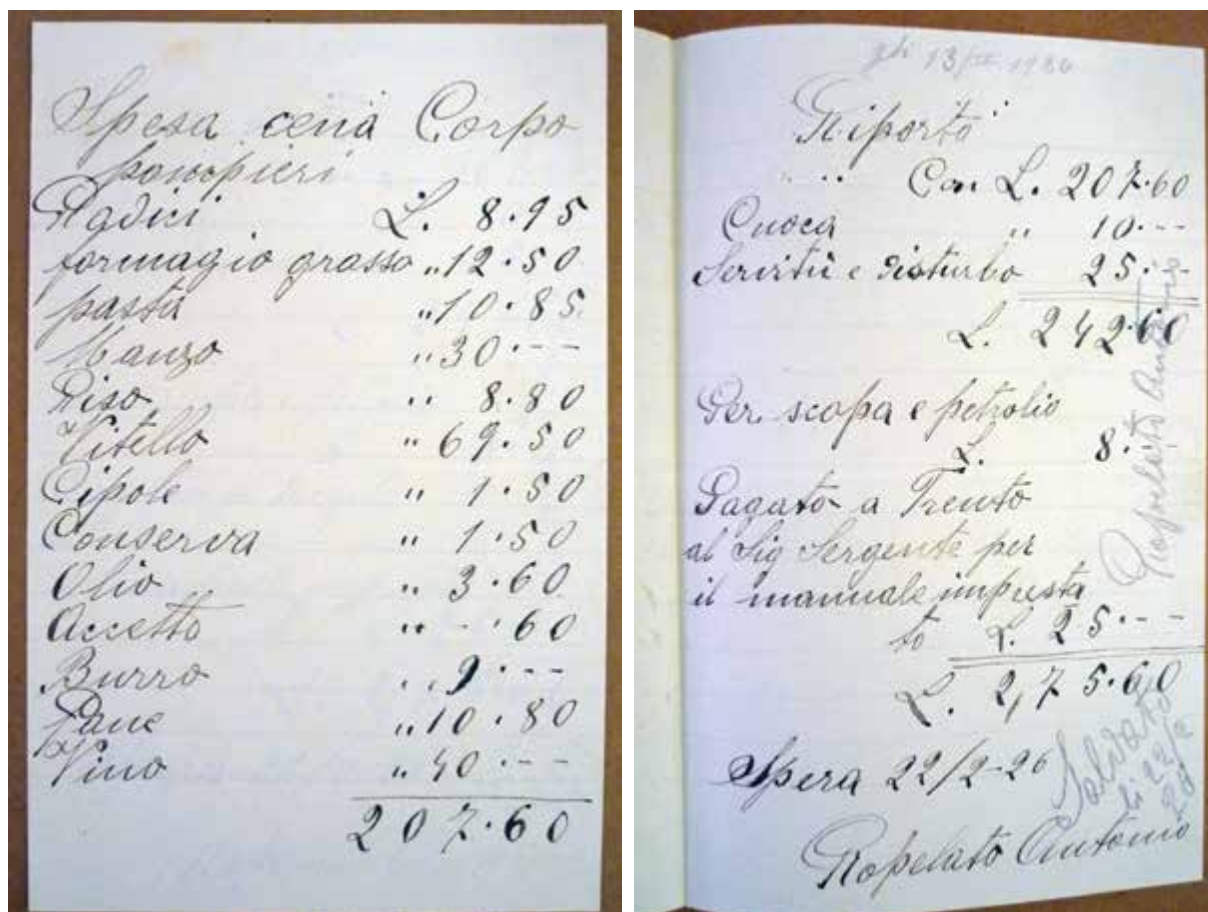 Spesa cena Corpo
pompieri
Radici L. 8.95
formagio grasso „ 12.50
pasta „ 10.85
Manzo „ 30.--
Riso „ 8.80
Vitello „ 69.50
Cipole „ 1.50
Conserva „ 1.50
Olio „ 3.60
Accetto „ -.60
Burro „ 9.--
Pane „ 10.80
Vino „ 40.--
207.60
13/II 1926
Riporto
L. 207.60
Cuoca „ 10.--
Servitù e disturbo 25.-
L. 242.60
Per scopa e petrolio
L. 8.-
Pagato a Trento
al Sig Sergente per
il manuale impresta
to L. 25.--
L. 275.60
Spera 22/2-26
Ropelato Antonio
Ropelato Antonio
Saldato
li 22/2
26